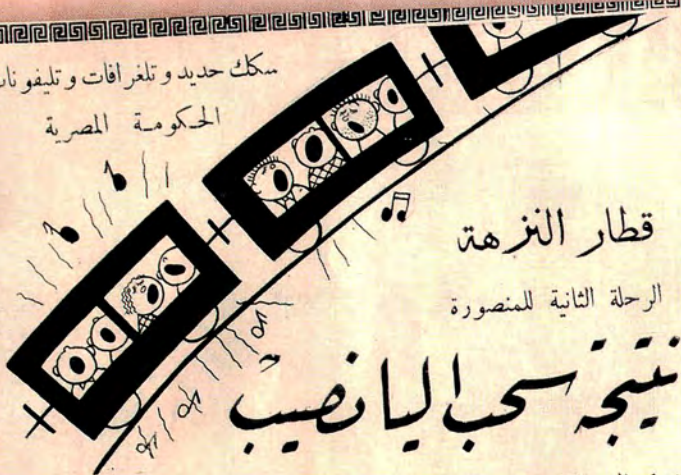 سكك حديد و تلغرافات و تليفونات
الحكومة المصرية
قطار النزهة
الرحلة الثانية للمنصورة
نتيجة سحب اليانصيب